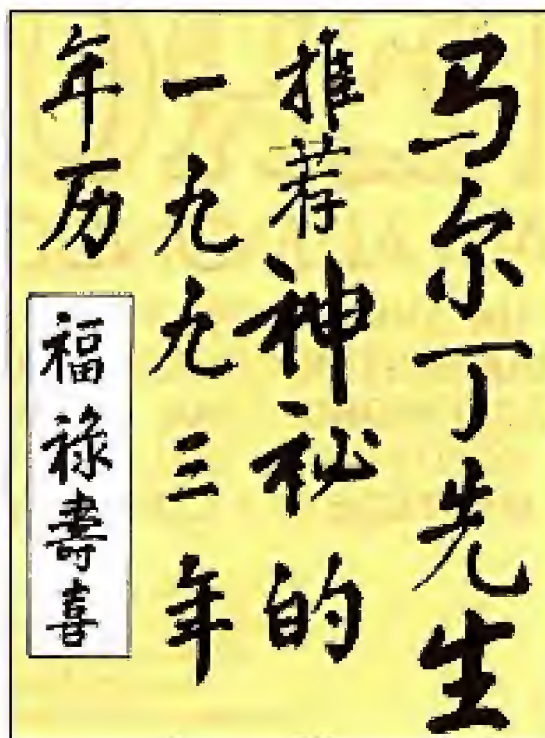 马尔丁先生
推荐神秘的
一九九三年
年历
福禄壽喜